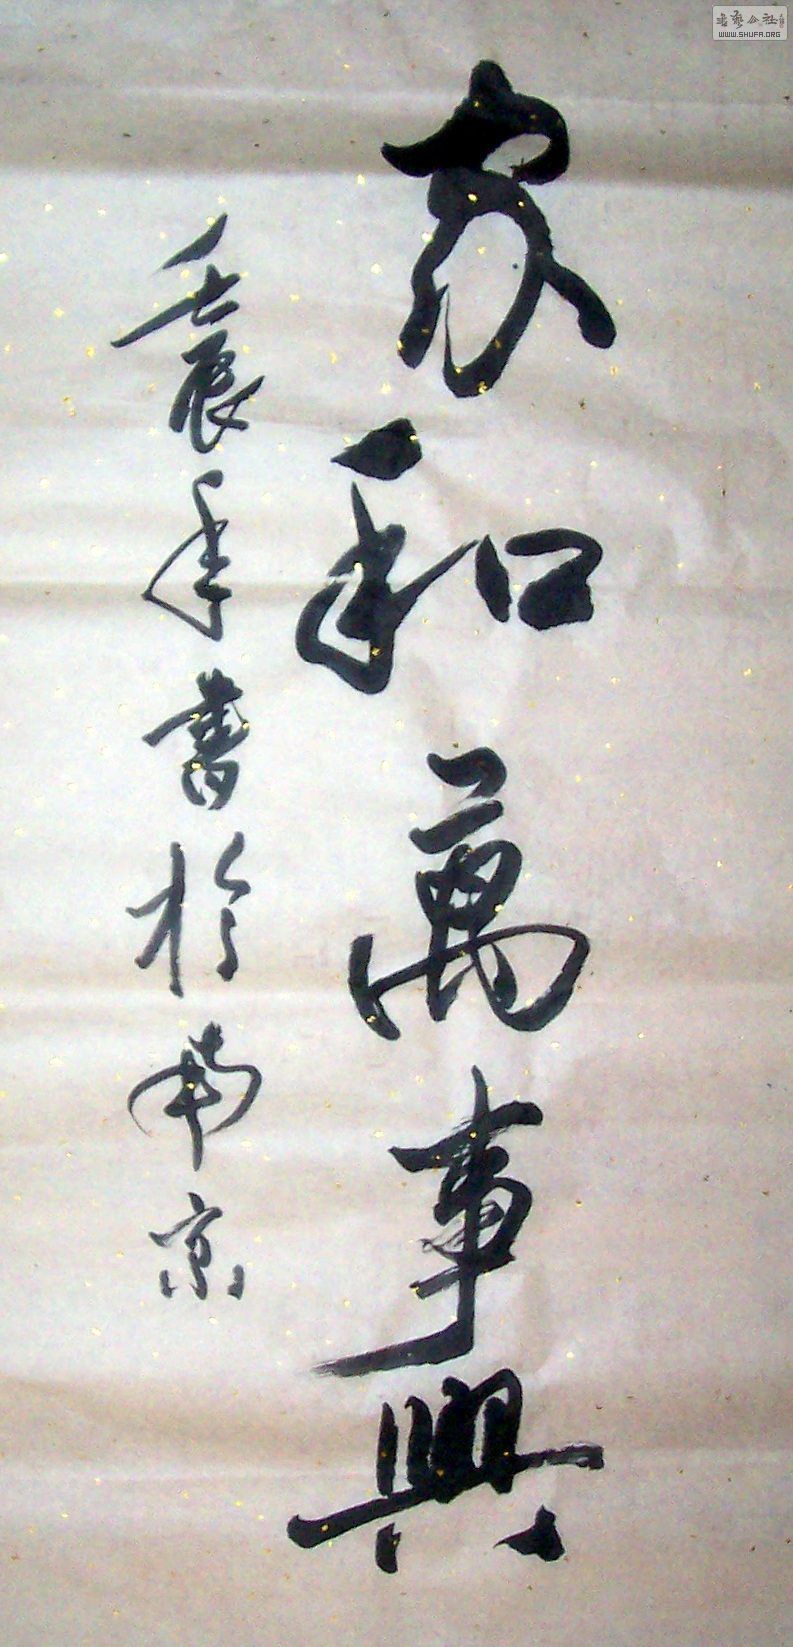 家和萬事興
壬辰年書於南京
WWW.SHUFA.ORG